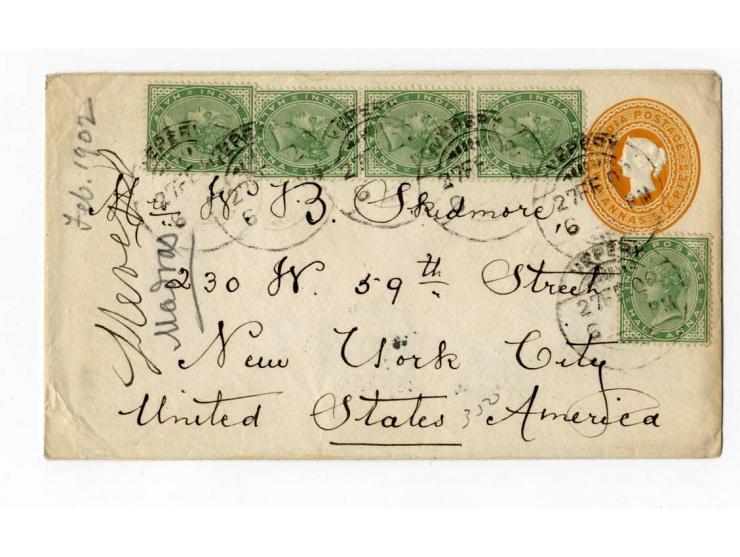 Feb. 1902
Madras.
W. B. Skidmore,
230 W. 59th Street
New York City
United States America
350
INDIA POSTAGE
HALF ANNA
27 FE 02
6 PM